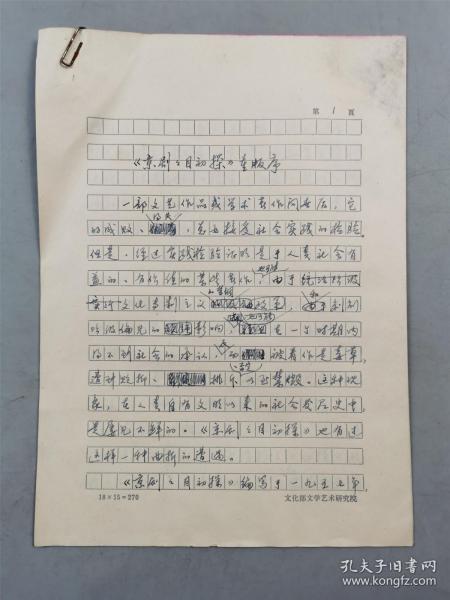 第 1 頁
《京剧之目初探》重版序
一部文艺作品或学术著作问世后,它
的成败、得失,总要接受社会实践的检验。
但是,经过实践检验证明是于人类社会有
益的、有价值的某些著作,也可能由于统治阶级
文化专制主义的,和
吟派偏见的影响,在一个时期内
得不到社会的承认,而被看作是毒草,
遭到贬抑、排斥以至禁毁。这种现
象,在人类自有文明以来的社会发展史中
是屡见不鲜的。《京剧之目初探》也有过
这样一种曲折的遭遇。
《京剧之目初探》编写于一九五七年,
18×15=270
文化部文学艺术研究院
孔夫子旧书网
www.kongfz.com